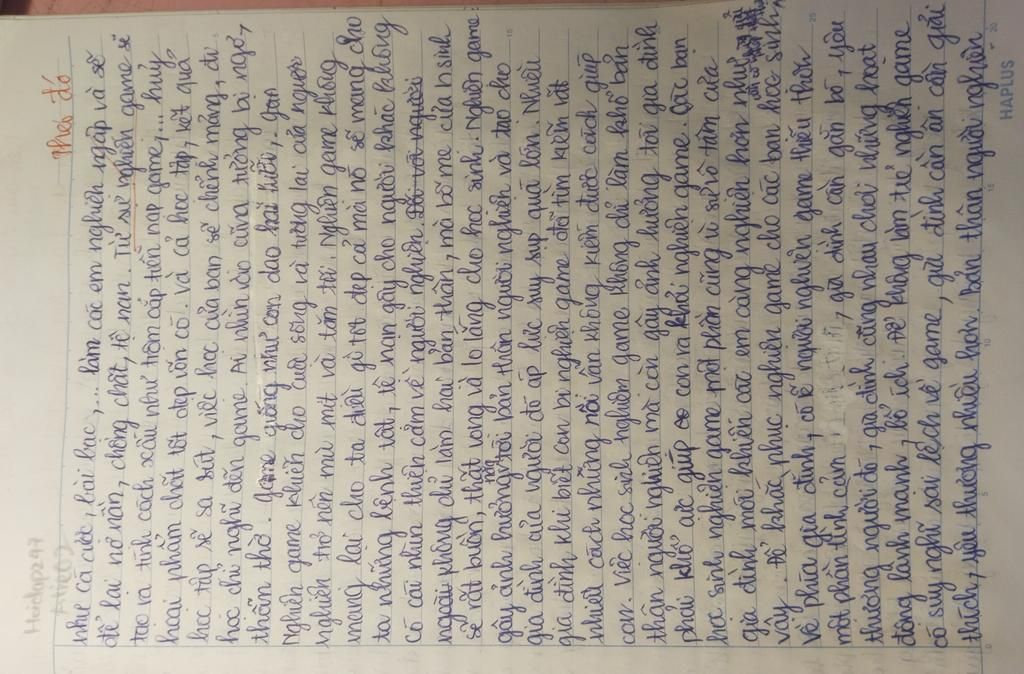 Haidip247
theo đó
như cá cược, bài bạc,... làm các em nghiện ngập và sẽ
để lại nợ nần, chồng chất, tệ nạn. Từ sự nghiện game sẽ
tạo ra tính cách xấu như trộm cắp tiền nạp game,... hủy
hoại phẩm chất tốt đẹp vốn có. Và cả học tập, kết quả
học tập sẽ sa sút, việc học của bạn sẽ chểnh mảng, đi
học chỉ nghĩ đến game. Ai nhìn vào cũng tưởng bị ngơ,
thẫn thờ. Game giống như con dao hai lưỡi,
Nghiện game khiến cho cuộc sống và tương lai của người
nghiện trở nên mù mịt và tăm tối. Nghiện game không
mang lại cho ta điều gì tốt đẹp cả mà nó sẽ mang cho
ta những bệnh tật, tệ nạn gây cho người khác không
có cái nhìn thiện cảm về người nghiện. Đối với người
ngoài không chỉ làm hại bản thân, mà bố mẹ của h.sinh
sẽ rất buồn, thất vọng và lo lắng cho học sinh. Nghiện game
gây ảnh hưởng tới bản thân người nghiện và tạo cho
gia đình của người đó áp lực suy sụp quá lớn. Nhiều
gia đình khi biết con bị nghiện game đã tìm kiếm rất
nhiều cách nhưng vẫn không kiếm được cách giúp
con. Việc học sinh nghiện game không chỉ làm khổ bản
thân người nghiện mà còn gây ảnh hưởng tới gia đình
phải khổ cực giúp con ra khỏi nghiện game. Các bạn
học sinh nghiện game một phần cũng vì sự vô tâm của
gia đình mới khiến các em càng nghiện hơn như
vậy. Để khắc phục nghiện game cho các bạn học sinh,
Về phía gia đình, có lẽ người nghiện game thiếu thốn
một phần tình cảm, gia đình cần gắn bó, yêu
thương người đó, gia đình cùng nhau chơi những hoạt
động lành mạnh, bổ ích. Để không làm từ nghiện game
có suy nghĩ sai lệch về game, gia đình cần ân cần giải
thích, yêu thương nhiều hơn. Bản thân người nghiện
HAPLUS